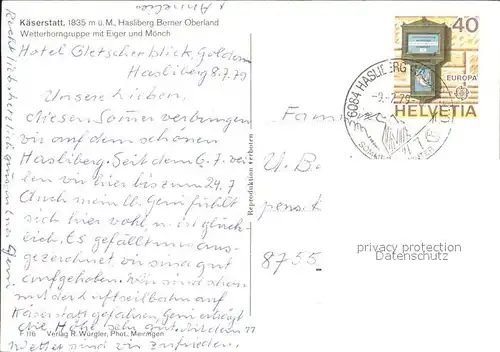 u. Annelies
Käserstatt, 1835 m ü.M., Hasliberg Berner Oberland
Wetterhorngruppe mit Eiger und Mönch
Hotel Gletscherblick, Goldern
Hasliberg 8.7.79
Unsere Lieben.
diesen Somer verbringen
wir auf dem schönen
Hasliberg. Seit dem 6.7. wei-
len wir hier bis zum 24.7
Auch mein lb. Geni fühlt
sich hier wohl, u. ist glück-
lich. Es gefällt uns aus-
gezeichnet wir sind gut
aufgehoben. Wir sind schon
mit der Luftseilbahn auf
Käserstatt gefahren, Geni erträgt
die Höhe sehr gut. Mit dem
Wetter sind wir zufrieden.
F 116 Verlag R. Würgler, Phot. Meiringen 77
Reproduktion verboten
Recht
herzlich
Geni
40
EUROPA
HELVETIA
6084 HASLIBERG
-9.-7.79
SOMMER
Fam
U. B.
pens.
8755
privacy protection
Datenschutz